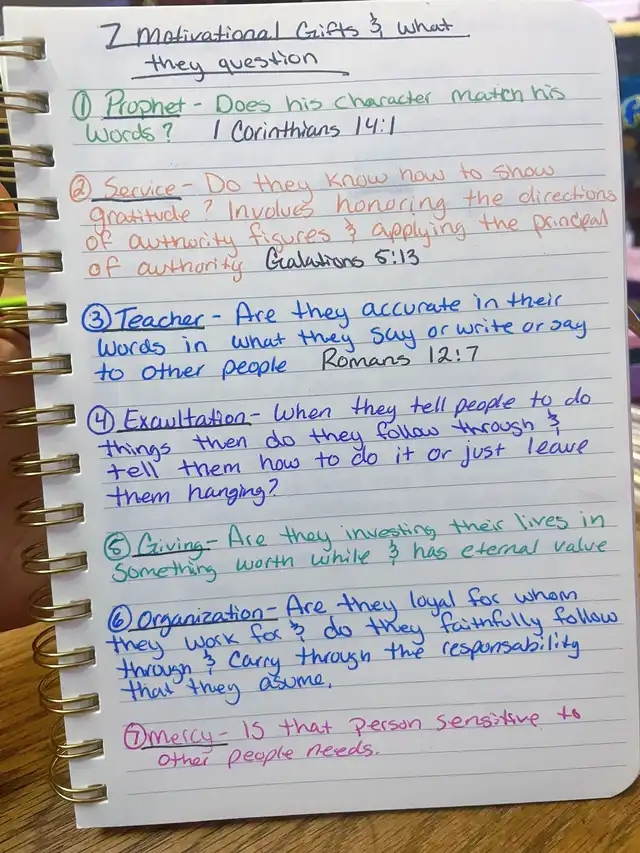 7 Motivational Gifts & what
they question
① Prophet - Does his character match his
words? 1 Corinthians 14:1
② Service - Do they know how to show
gratitude? Involves honoring the directions
of authority figures & applying the principal
of authority Galations 5:13
③ Teacher - Are they accurate in their
words in what they say or write or say
to other people Romans 12:7
④ Exaultation - when they tell people to do
things then do they follow through &
tell them how to do it or just leave
them hanging?
⑤ Giving - Are they investing their lives in
something worth while & has eternal value
⑥ Organization - Are they loyal for whom
they work for & do they faithfully follow
through & carry through the responsability
that they asume.
⑦ Mercy - Is that person sensitive to
other people needs.